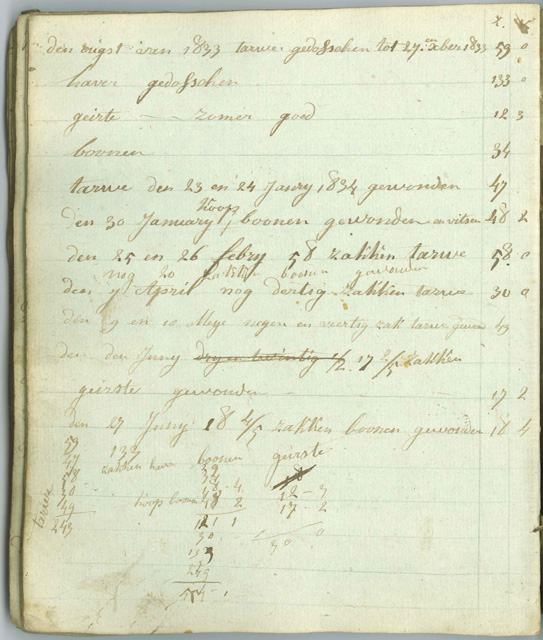 z. v
den oigst aren 1833 tarwe gedosschen tot 27 xber 1833 59 0
haver gedosschen 133 0
geirte — zomer goed 12 3
boonen 34
tarwe den 23 en 24 Janry 1834 gewonden 47
hoop
den 30 January, boonen gewonden en vitsen 48 2
den 25 en 26 febry 58 zakken tarwe 58 0
nog 20 zakken boonen gewonden
den 7 April nog dertig zakken tarwe 30 0
den 9 en 10 Meye negen en veertig zak tarwe gewon 49
den den Juny dry en twintig 1/2 17 2/5 zakken
geirste gewonden 17 2
den 27 Juny 18 4/5 zakken boonen gewonden 18 4
tarwe
59
47
58
30
49
243
133
zakken haver
boonen
34
18 - 4
hoop boonen 48 2
121 1
30
133
243
geirste
12 - 3
17 - 2
30 0